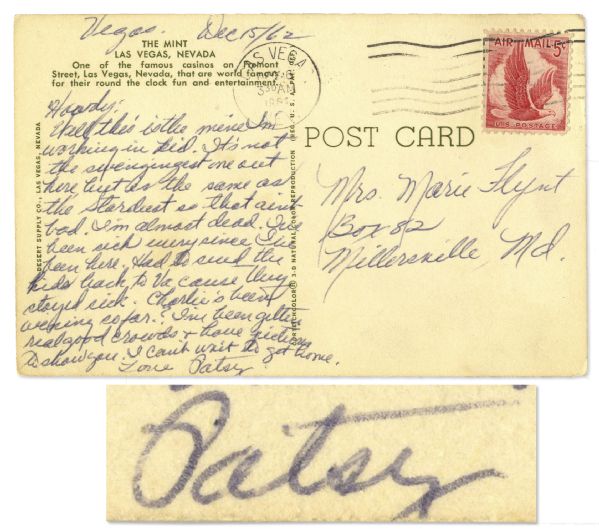 Vegas. Dec 15/62
THE MINT
LAS VEGAS, NEVADA
One of the famous casinos on Fremont
Street, Las Vegas, Nevada, that are world famous
for their round the clock fun and entertainment.
Howdy:
Well this is the mine I'm
working in kid. It's not
the swingingest one out
here but as the same as
the Stardust so that aint
bad. I'm almost dead. I've
been sick every since I've
been here. Had to send the
kids back to Va cause they
stayed sick. Charlie's been
so far. I've been gettin
real good crowds + have
to show you. I can't wait to get home.
Love Patsy
DESERT SUPPLY CO., LAS VEGAS, NEVADA
3-D NATURAL COLOR REPRODUCTION
POST CARD
LAS VEGAS
330 AM
AIR MAIL 5¢
U.S. POSTAGE
Mrs. Marie Flynt
Box 82
Millersville, Md.
Patsy